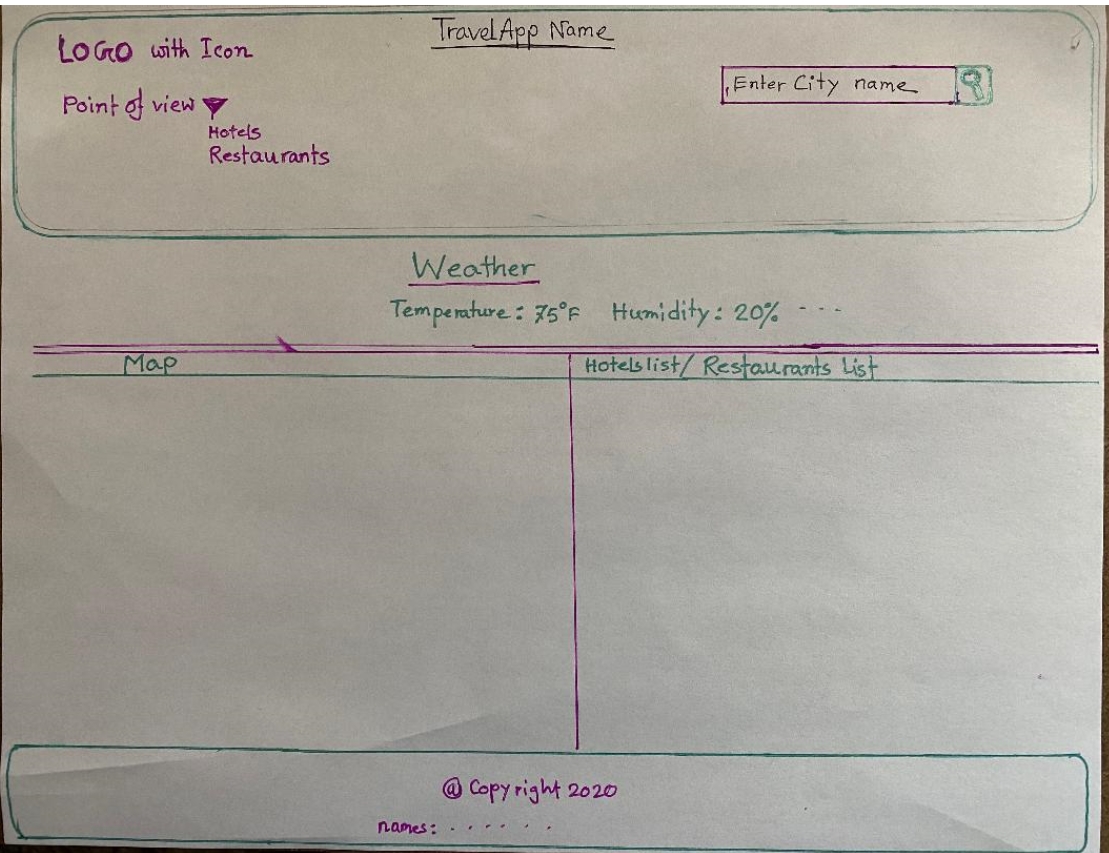 TravelApp Name
LOGO with Icon
Enter City name
Point of view
Hotels
Restaurants
Weather
Temperature: 75°F Humidity: 20% - - -
Map
Hotelslist/ Restaurants List
@ Copyright 2020
names: . . . . . .